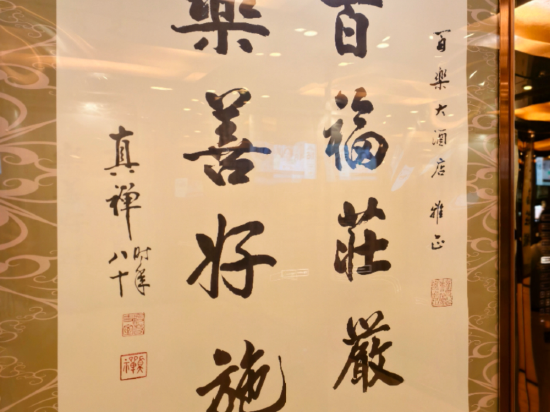 百樂大酒店 雅正
百福莊嚴
樂善好施
真禪
时年
八十